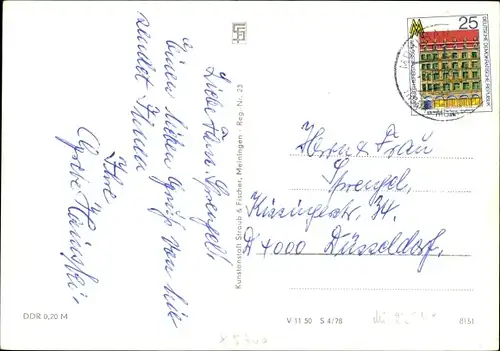 Liebe Frau Sprengel!
einen lieben Gruß von hier
sendet Ihnen
Ihre
Kunstanstalt Straub & Fischer, Meiningen · Reg.-Nr. 23
25
DEUTSCHE DEMOKRATISCHE REPUBLIK
Herrn & Frau
Sprengel,
Kissingerstr. 34.
D 4000 Düsseldorf.
DDR 0,20 M
V 11 50 S 4/78
8151